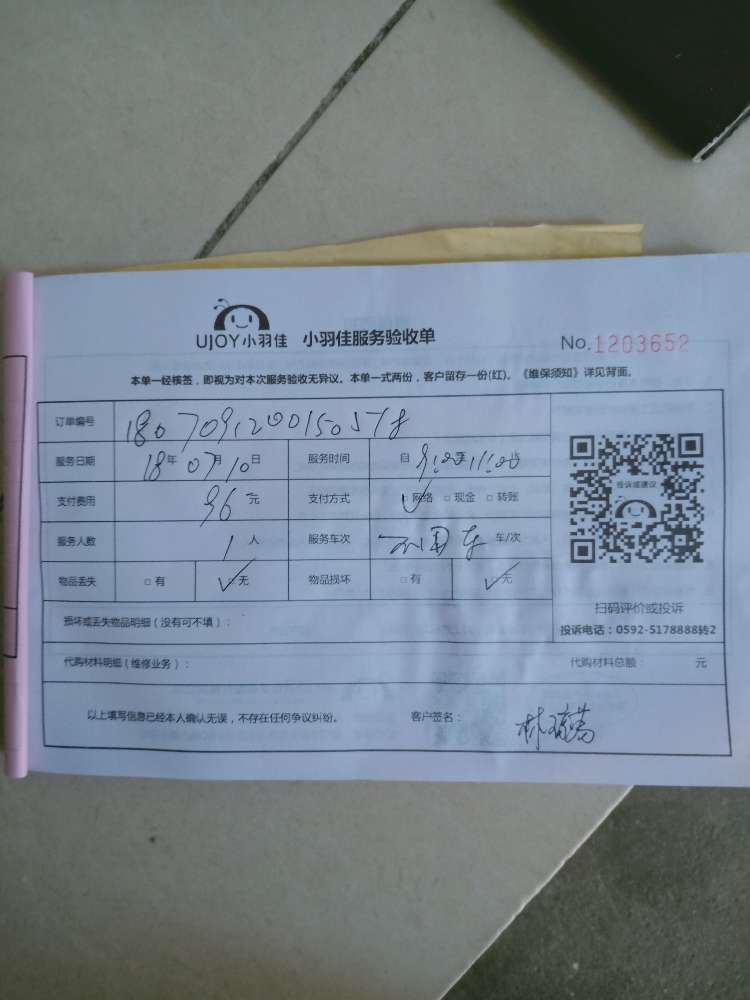 UJOY小羽佳 小羽佳服务验收单 No.1203652
本单一经核签，即视为对本次服务验收无异议。本单一式两份，客户留存一份(红)。《维保须知》详见背面。
订单编号
服务日期 18年 07月 10日 服务时间 自 9:00至11:00
支付费用 96 元 支付方式 ✓网络 □ 现金 □ 转账
服务人数 1 人 服务车次 车/次
物品丢失 □ 有 ✓无 物品损坏 □ 有 ✓无
投诉或建议
扫码评价或投诉
投诉电话：0592-5178888转2
损坏或丢失物品明细（没有可不填）：
代购材料明细（维修业务）： 代购材料总额： 元
以上填写信息已经本人确认无误，不存在任何争议纠纷。 客户签名：